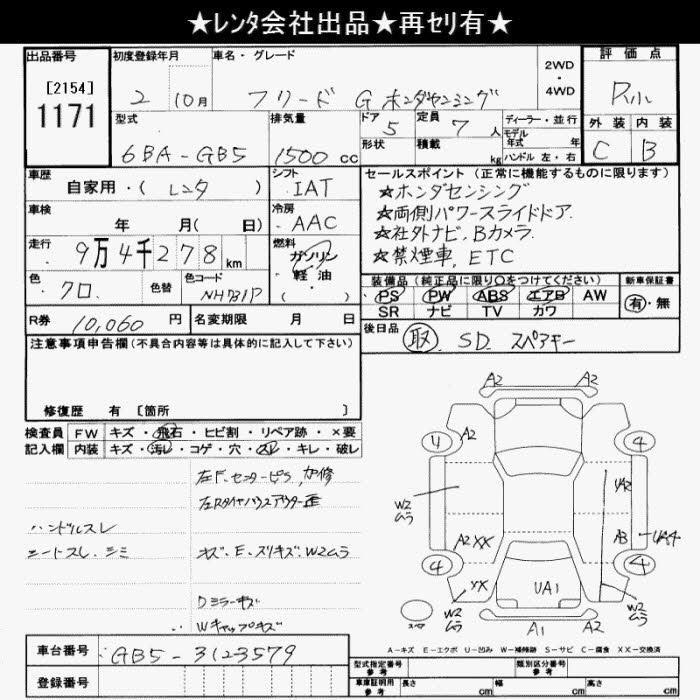 ★レンタ会社出品★再セリ有★
出品番号 初度登録年月 車名・グレード 2WD・4WD 評価点
[2154]
1171
2年 10月 フリード G ホンダセンシング
型式 排気量 ドア 5 定員 7人 ディーラー・並行 外装 内装
形状 積載 kg モデル年式 年 ハンドル 左・右
6BA-GB5 1500cc C B
車歴 自家用・(レンタ) シフト IAT
セールスポイント (正常に機能するものに限ります)
☆ホンダセンシング
☆両側パワースライドドア.
☆社外ナビ, Bカメラ.
☆禁煙車, ETC
車検 年 月( 日) 冷房 AAC
走行 9万4千278km 燃料 ガソリン・軽油・( )
色 クロ. 色替 色コード NH731P
装備品(純正品に限り○をつけてください) 新車保証書
PS PW ABS エアB AW 有・無
SR ナビ TV カワ
R券 10,060円 名変期限 月 日
後日品 取 SD. スペアキー
注意事項申告欄(不具合内容等は具体的に記入して下さい)
修復歴 有 [箇所 ]
検査員 FW キズ・飛石・ヒビ割・リペア跡・×要
記入欄 内装 キズ・汚レ・コゲ・穴・スレ・キレ・破レ
ハンドルスレ
シートスレ. シミ
キズ. E. スリキズ. W2ムラ
Dミラーキズ
Wキャップキズ
A2 A2
4 A2 4
UA2
W2ムラ
A2 XX A3 UA4
4 4
XX UA1
W2ムラ W2ムラ
スペア A1 A2
A-キズ E-エクボ U-凹み W-補修跡 S-サビ C-腐食 XX-交換済
車台番号 GB5-3123579
登録番号
型式指定番号 参考 類別区分番号 参考
車庫証明用 参考 長さ cm 幅 cm 高さ cm